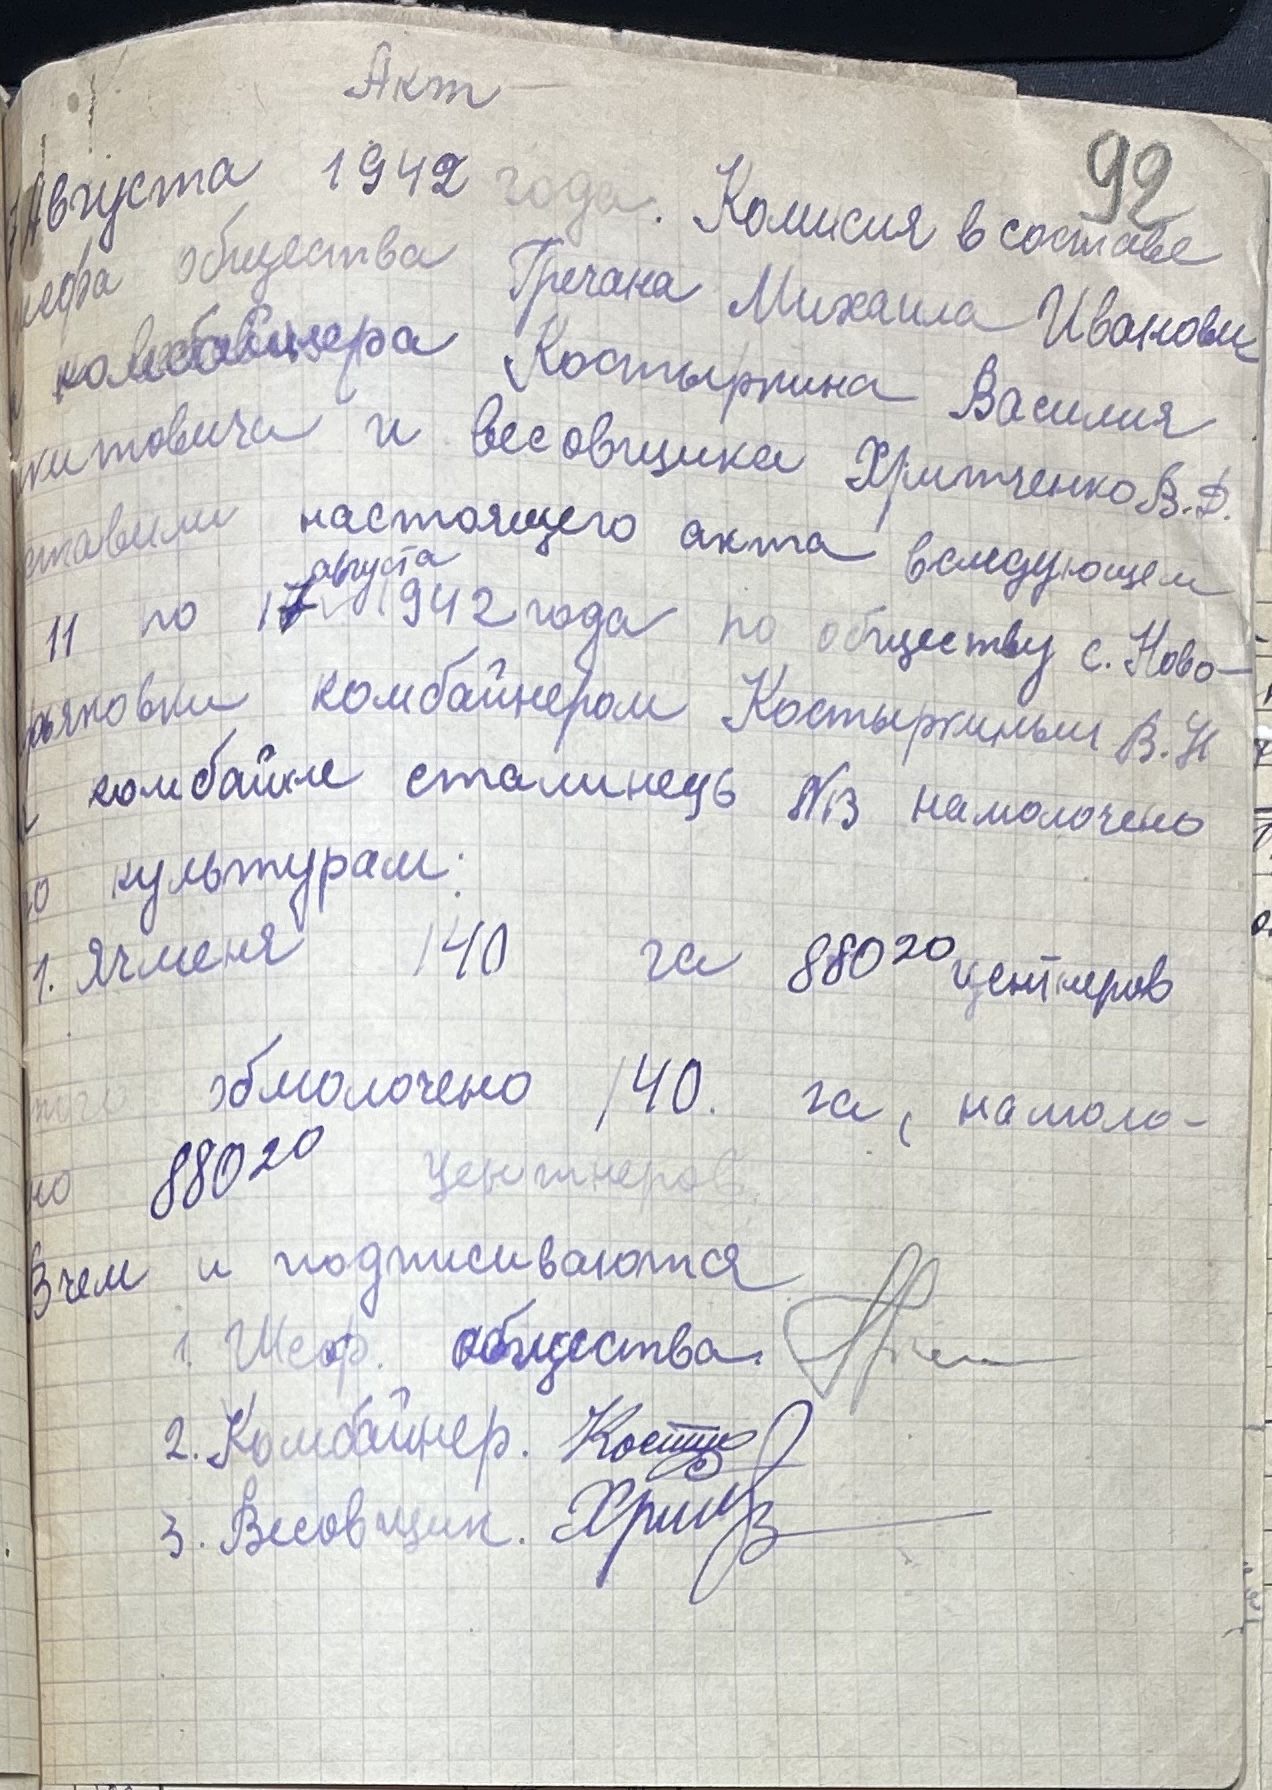 Акт
92
Августа 1942 года. Комисия в составе
общества Гречана Михаила Иванови
комбайнера Костыркина Василия
китовича и весовщика Хритченко В.Д.
ставили настоящего акта вследующем
августа
11 по 17 1942 года по обществу с. Ново-
комбайнером Костыркиным В.Н
комбайне сталинець №13 намолочено
по культурам:
1. Ячменя 140 га 880²⁰ центнеров
обмолочено 140. га, намоло-
но 880²⁰ центнеров.
Вчем и подписиваются
1. Шеф. общества.
2. Комбайнер.
3. Весовщик.